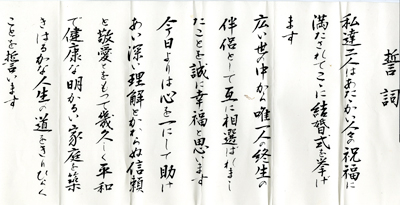 誓詞
私達二人はあたたかい人々の祝福に
満たされてここに結婚式を挙げ
ます
広い世の中から唯一人の終生の
伴侶として互に相選ばれまし
たことを誠に幸福と思います
今日よりは心を一にして助け
あい深い理解とかわらぬ信頼
と敬愛とをもって幾久しく平和
で健康な明かるい家庭を築
きはるかな人生の道をきりひらく
ことを誓います